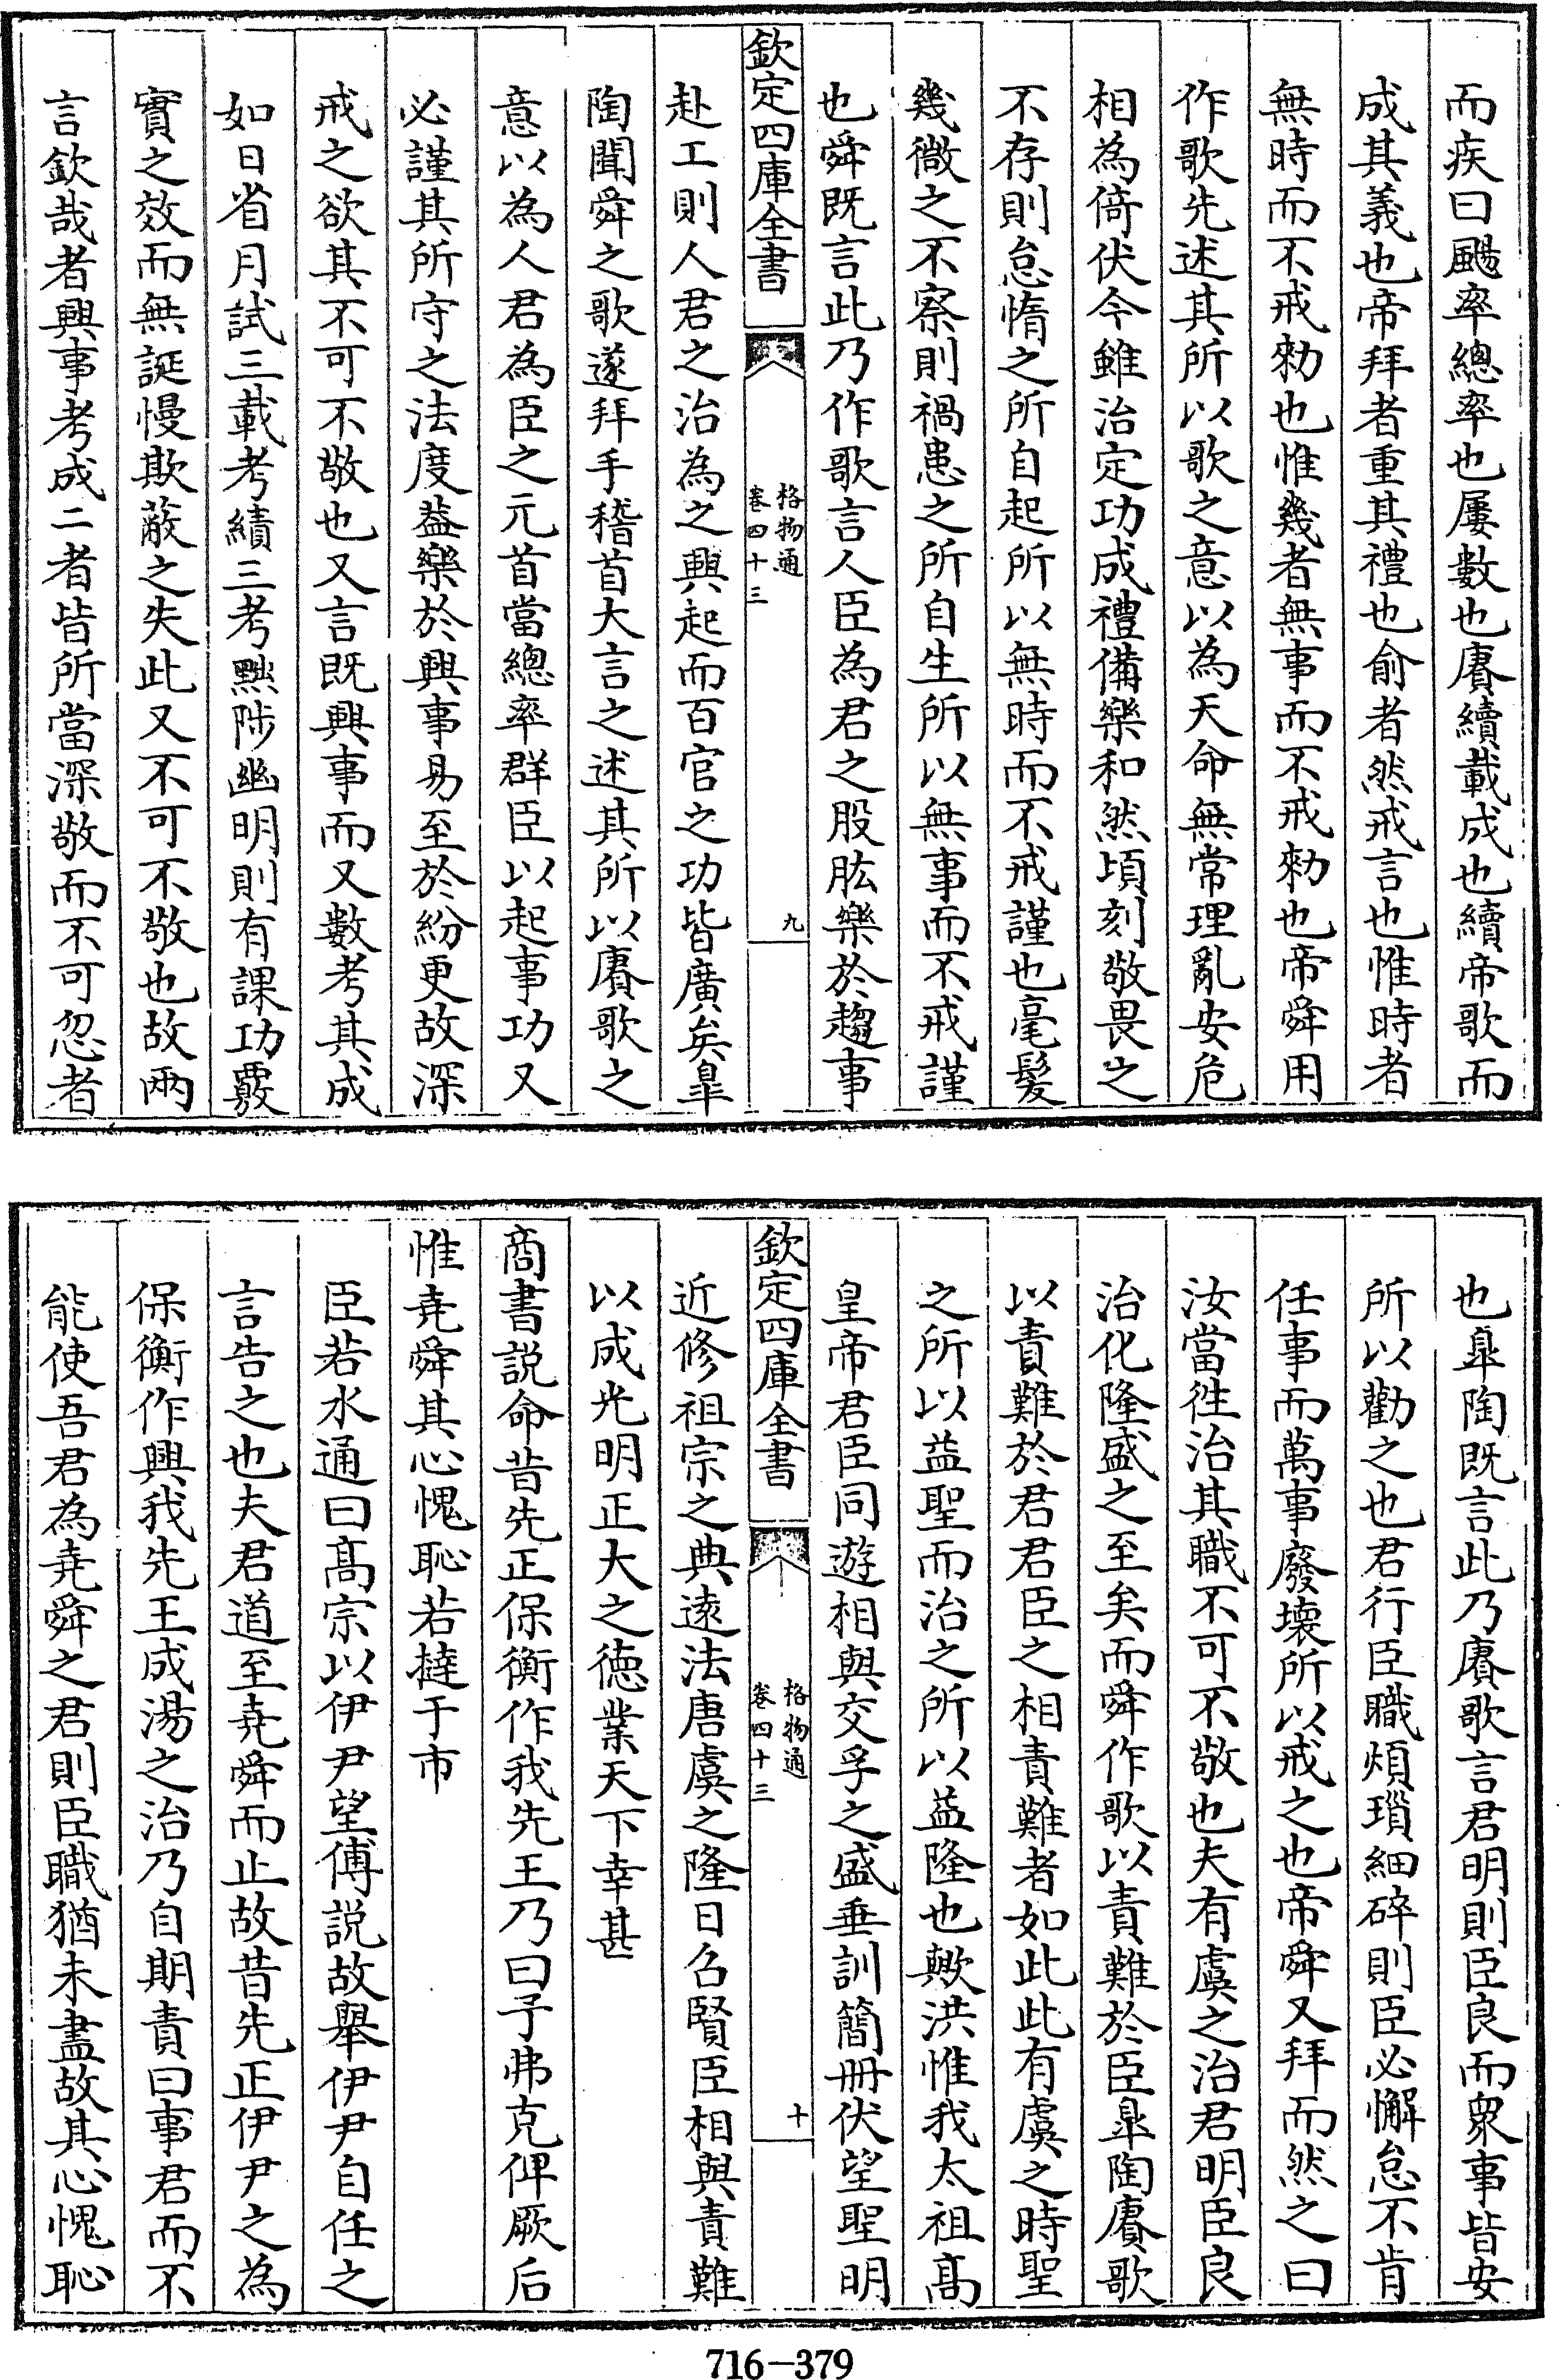 而疾曰颺率總率也屢數也賡續載成也續帝歌而
成其義也帝拜者重其禮也俞者然戒言也惟時者
無時而不戒勑也惟幾者無事而不戒勑也帝舜用
作歌先述其所以歌之意以為天命無常理亂安危
相為倚伏今雖治定功成禮備樂和然頃刻敬畏之
不存則怠惰之所自起所以無時而不戒謹也毫髮
幾微之不察則禍患之所自生所以無事而不戒謹
也舜既言此乃作歌言人臣為君之股肱樂於趨事
欽定四庫全書
格物通
卷四十三
九
赴工則人君之治為之興起而百官之功皆廣矣臯
陶聞舜之歌遂拜手稽首大言之述其所以賡歌之
意以為人君為臣之元首當總率群臣以起事功又
必謹其所守之法度葢樂於興事易至於紛更故深
戒之欲其不可不敬也又言既興事而又數考其成
如日省月試三載考績三考黜陟幽明則有課功覈
實之效而無誕慢欺蔽之失此又不可不敬也故兩
言欽哉者興事考成二者皆所當深敬而不可忽者
也臯陶既言此乃賡歌言君明則臣良而衆事皆安
所以勸之也君行臣職煩瑣細碎則臣必懈怠不肯
任事而萬事廢壞所以戒之也帝舜又拜而然之曰
汝當徃治其職不可不敬也夫有虞之治君明臣良
治化隆盛之至矣而舜作歌以責難於臣臯陶賡歌
以責難於君君臣之相責難者如此此有虞之時聖
之所以益聖而治之所以益隆也歟洪惟我太祖高
皇帝君臣同遊相與交孚之盛垂訓簡冊伏望聖明
欽定四庫全書
格物通
卷四十三
十
近修祖宗之典遠法唐虞之隆日召賢臣相與責難
以成光明正大之德業天下幸甚
商書説命昔先正保衡作我先王乃曰予弗克俾厥后
惟堯舜其心愧恥若撻于市
臣若水通曰髙宗以伊尹望傅説故舉伊尹自任之
言告之也夫君道至堯舜而止故昔先正伊尹之為
保衡作興我先王成湯之治乃自期責曰事君而不
能使吾君為堯舜之君則臣職猶未盡故其心愧恥
716-379